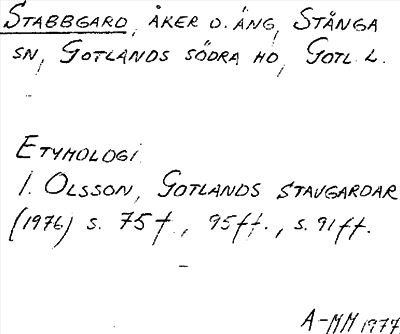 STABBGARD, ÅKER O. ÄNG, STÅNGA
SN, GOTLANDS SÖDRA HD, GOTL. L.
ETYMOLOGI
I. OLSSON, GOTLANDS STAVGARDAR
(1976) s. 75f., 95ff., s. 91ff.
A-MM 1977